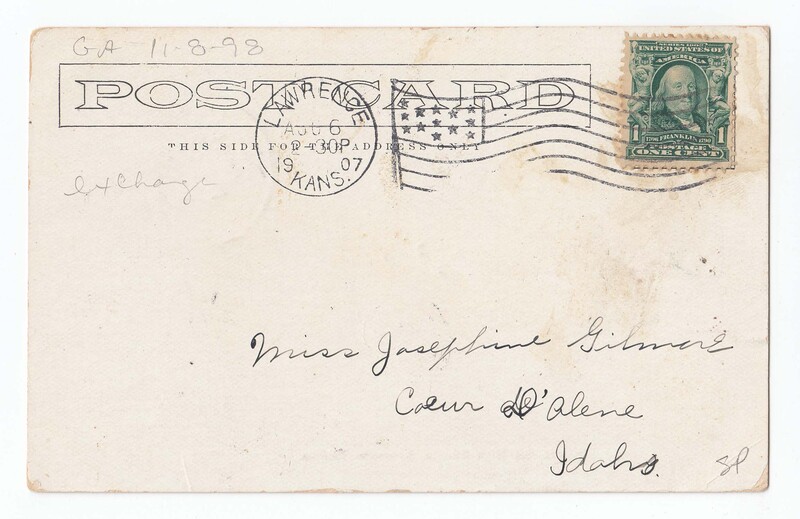 GA 11-8-98
POST CARD
THIS SIDE FOR THE ADDRESS ONLY
LAWRENCE
AUG 6
2-30P
19 07
KANS.
SERIES 1902
UNITED STATES OF
AMERICA
1706 FRANKLIN 1790
POSTAGE
1 ONE CENT 1
Exchange
Miss Josephine Gilmore
Coeur D'Alene
Idaho.